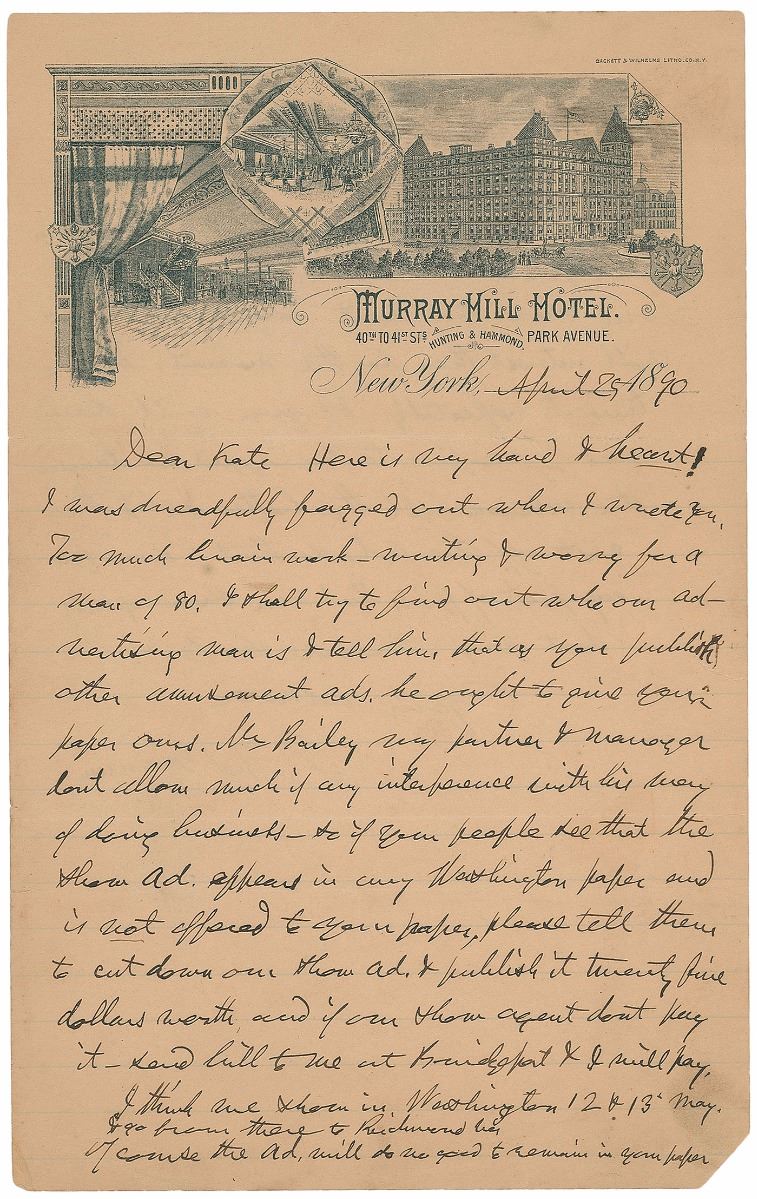 SACKETT & WILHELMS LITHO. CO. N.Y.
MURRAY HILL HOTEL.
40TH TO 41ST STS HUNTING & HAMMOND, PARK AVENUE.
New York, April 29 1890
Dear Kate Here is my hand & heart!
I was dreadfully fagged out when I wrote you.
Too much brain work - writing & worry for a
man of 80. I shall try to find out who our ad-
vertising man is & tell him, that as you publish
other amusement ads. he ought to give your
paper ours. Mr Bailey my partner & manager
dont allow much if any interference with his way
of doing business - so if your people see that the
show Ad. appears in any Washington paper and
is not offered to your paper, please tell them
to cut down our show ad. & publish it twenty five
dollars worth and if our show agent dont pay
it - send bill to me at Bridgeport & I will pay.
I think we show in Washington 12 & 13 May.
& go from there to Richmond Va
Of course the Ad. will do no good to remain in your paper